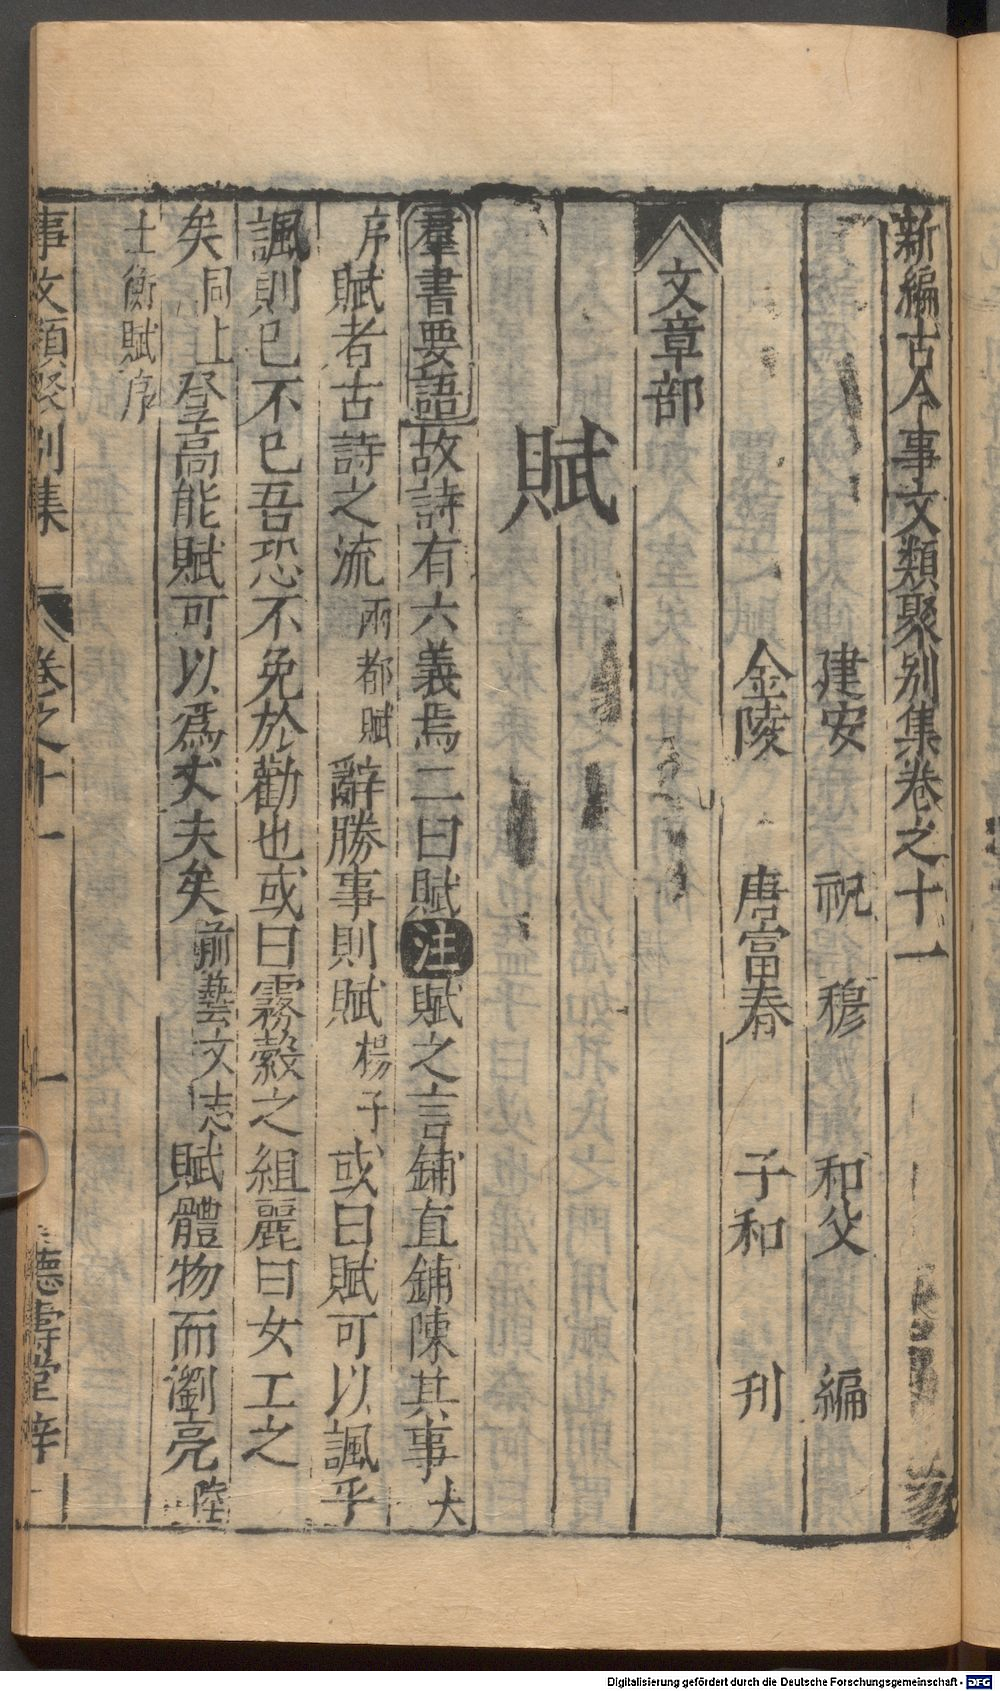 新編古今事文類聚别集卷之十一
建安 祝 穆 和父 編
金陵 唐富春 子和 刊
文章部
賦
羣書要語故詩有六義焉二曰賦注賦之言鋪直鋪陳其事大
序賦者古詩之流兩都賦辭勝事則賦楊子或曰賦可以諷乎
諷則已不已吾恐不免於勸也或曰霧縠之組麗曰女工之
矣同上登高能賦可以爲丈夫矣前藝文志賦體物而瀏亮陸
士衡賦序
事文類聚别集 卷之十一 一 德壽堂梓
Digitalisierung gefördert durch die Deutsche Forschungsgemeinschaft - DFG